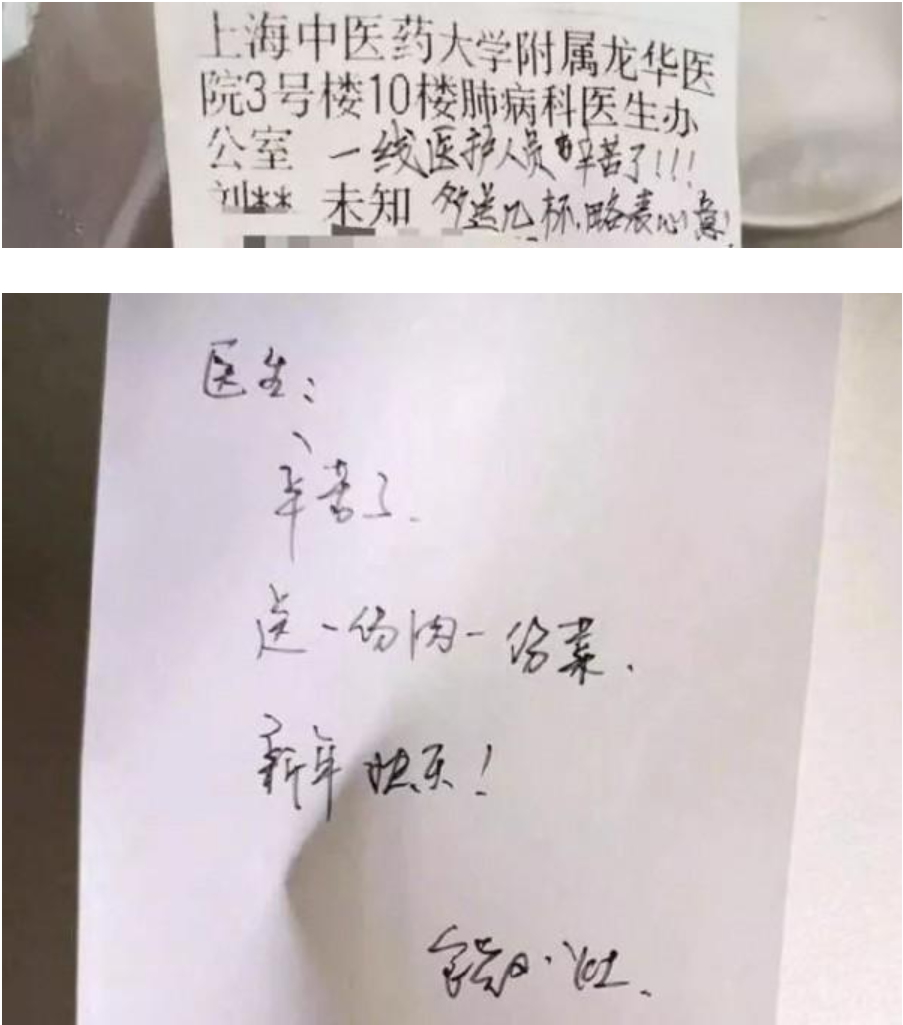 上海中医药大学附属龙华医
院3号楼10楼肺病科医生办
公室 一线医护人员辛苦了!!!
刘** 未知 多送几杯,略表心意!
医生:
辛苦了.
送一份肉一份菜.
新年快乐!
小灶.